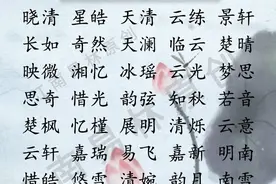 晓清 星皓 天清 云练 景轩
长如 奇然 天澜 临云 楚晴
映微 湘忆 冰瑶 云光 梦思
思奇 惜光 韵弦 知秋 若音
楚枫 忆槿 展明 清烁 云意
云轩 嘉瑞 易飞 嘉新 明南
惜皓 悠雪 清婉 韵月 南雪